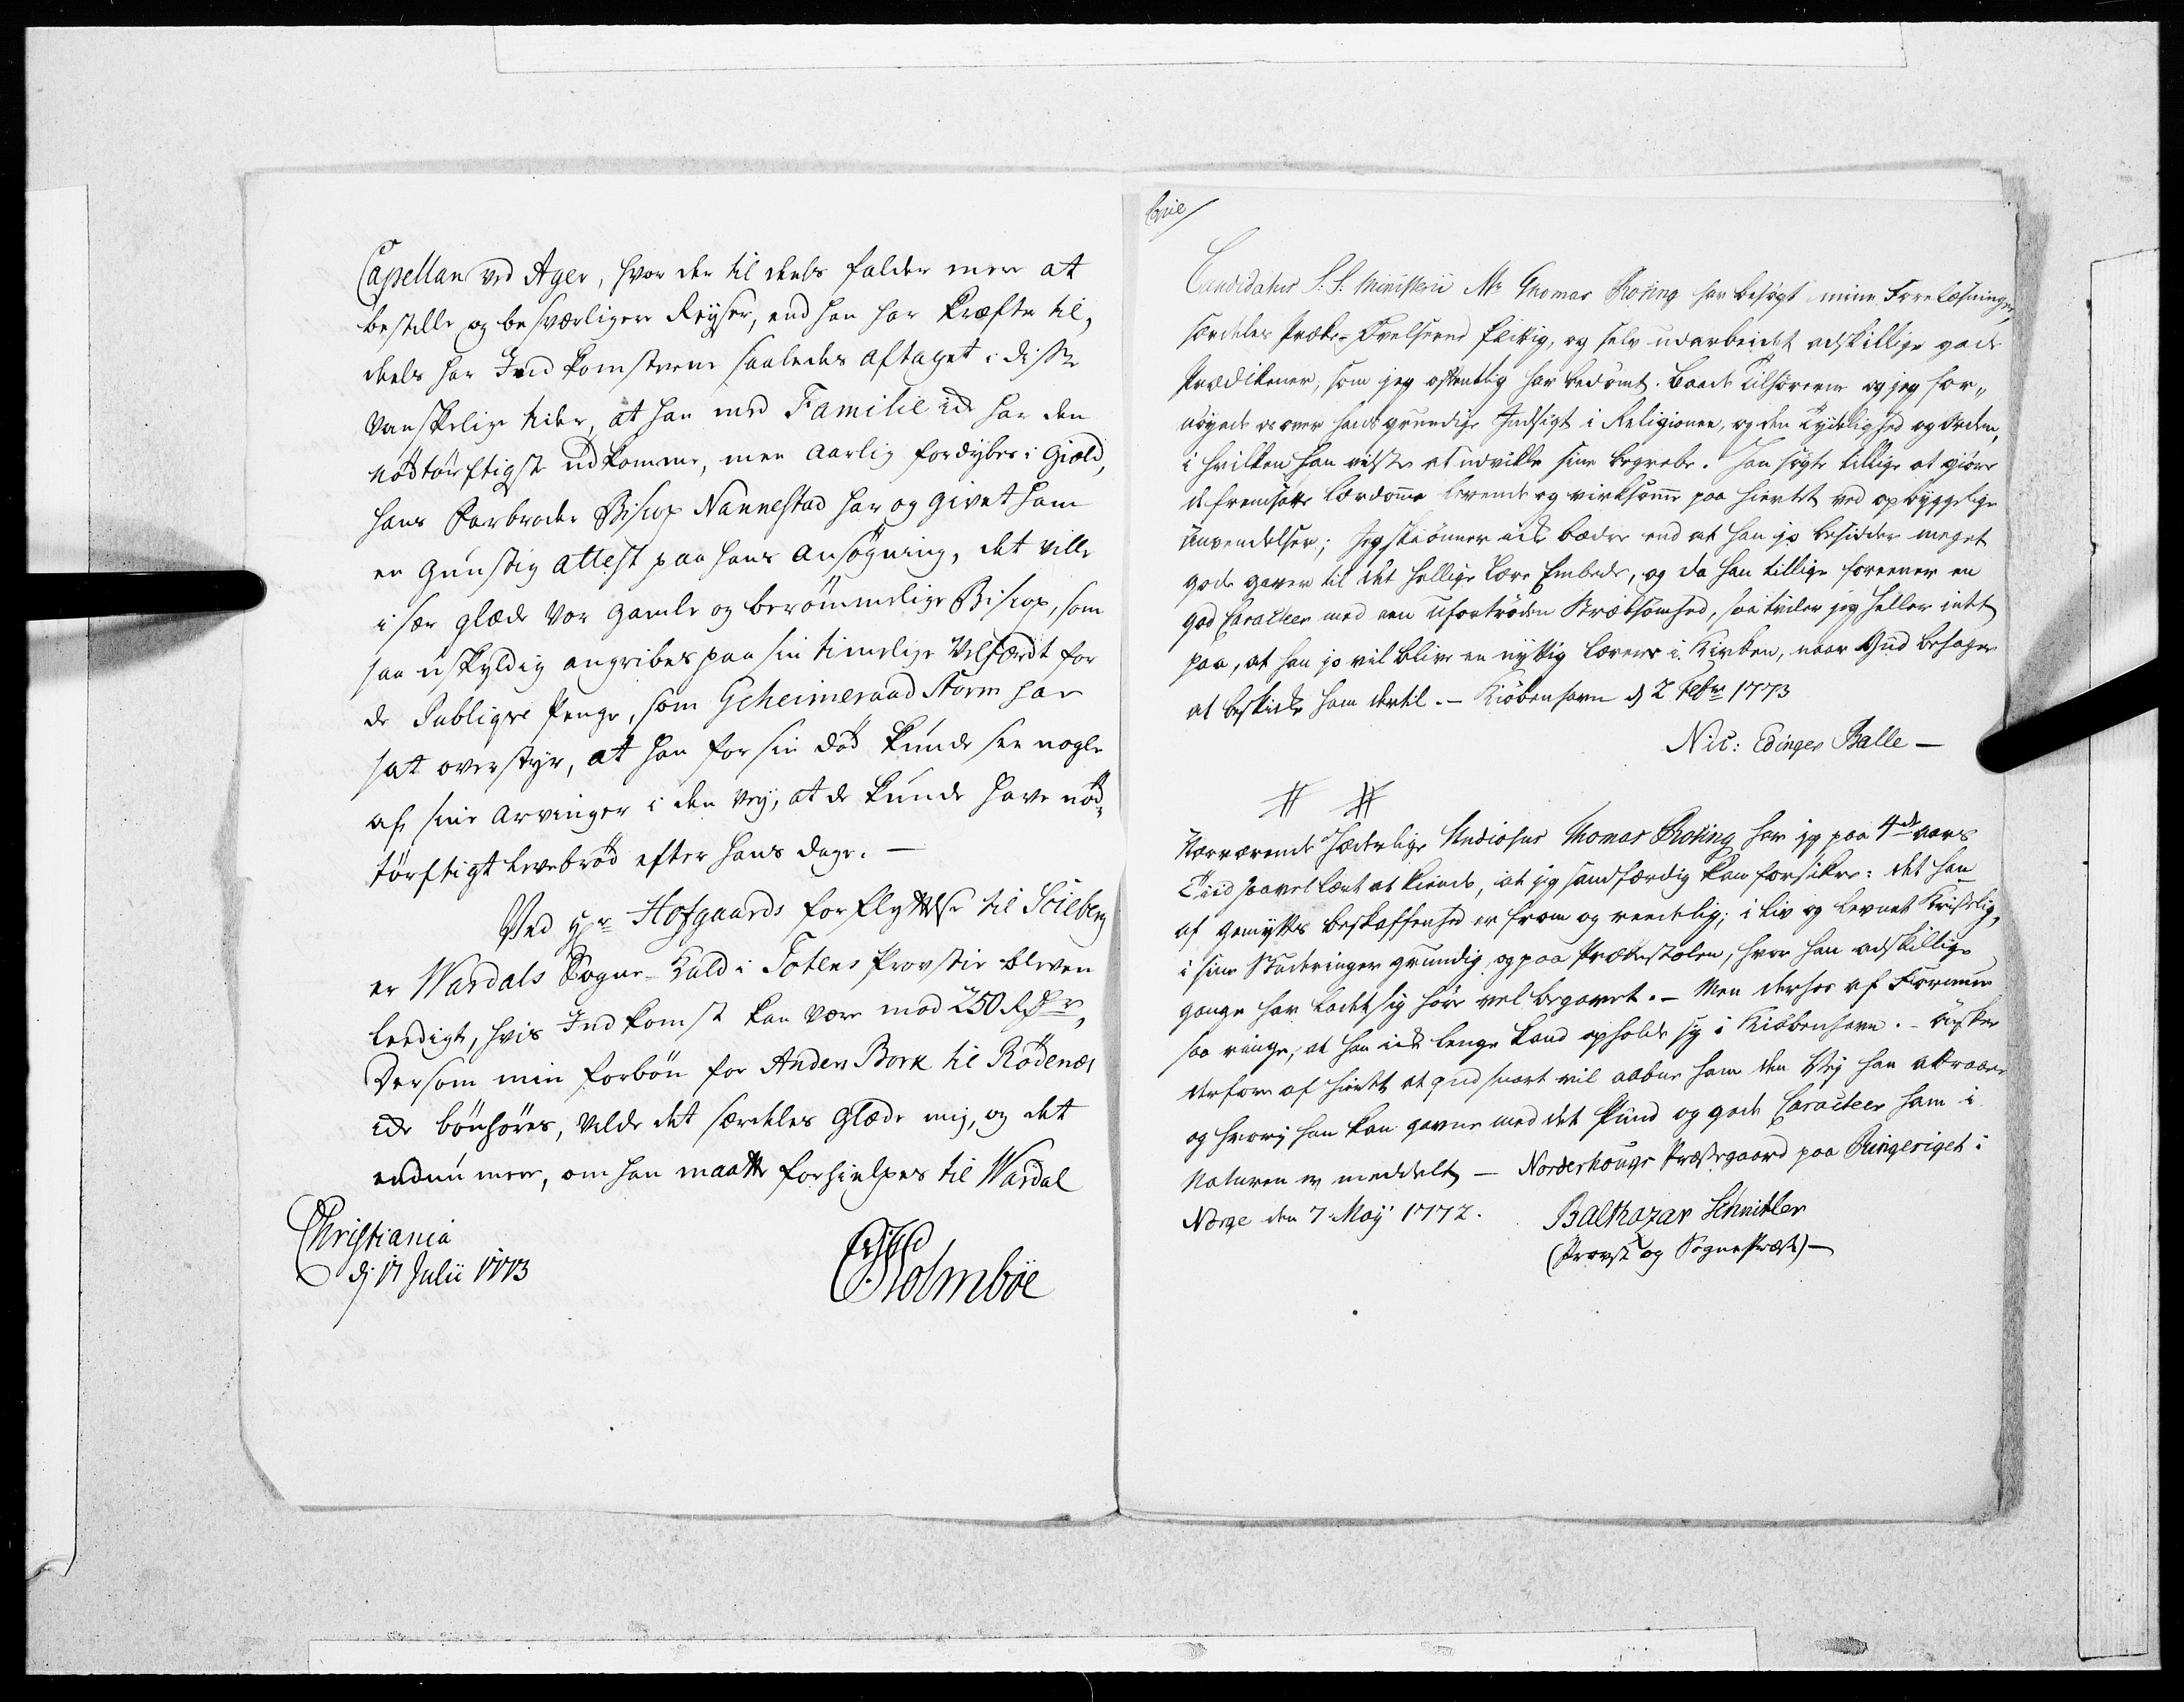 Capellan ved Ager, hvor der til deels falder mere at
bestille og besværligere Reyser, end han har Kræfter til,
deels har Indkomsterne saaledes aftaget i disse
vanskelige tider, at han med Familie icke har den
nødtørftigste udkomme, men aarlig fordybes i Giæld,
hans Farbroder Biscop Nannestad har og givet ham
en gunstig attest paa hans ansøgning, det ville
i sær glæde vor gamle og berømmelige Biscop, som
saa uskyldig angribes paa sin timelige Velfærdt for
de Publiqve Penge, som Geheimeraad Storm har
sat overstyr, at han for sin død kunde see nogle
af sine arvinger i den vey, at de kunde have nød-
tørftigt levebrød efter hans dage. —
Ved Hr Hofgaards forflyttelse til Scieberg
er Wardals Sogne-Kald i Totens Provstie bleven
leedigt, hvis Indkomst kan være mod 250 Rdr,
Dersom min forbøn for Anders Bork til Rødenæs
icke bønhøres, vilde det særdeles glæde mig, og det
endnu mere, om han maatte forhielpes til Wardal
Christiania
dj 17 Julii 1773
Holmboe
Copie/
Candidatus S.S. Ministerii Mr Thomas Rosing har besøgt mine Forelæsninger,
særdeles Præke-Øvelserne flittig, og selv udarbeidet adskillige gode
Prædikener, som jeg offentlig har bedømt. Baade Tilhørerne og jeg for„
nøyede os over hands grundige Indsigt i Religionen, og den Tydelighed og Orden,
i hvilken han vidste at udvikle sine begrebe. Han søgte tillige at giøre
de fremsatte Lærdomme levende og virksomme paa Hiertet ved opbyggelige
Anvendelser; Jeg skiønner icke bædre end at han jo besidder meget
gode gaver til det hellige Lære Embede, og da han tillige foreener en
god Caracteer med een ufortrøden Stræbsomhed, saa tviler jeg heller intet
paa, at han jo vil blive en nyttig Lærere i Kirken, naar Gud behager
at beskicke ham dertil. – Kiøbenhavn d 2 Febr 1773
Nic: Edinger Balle —
# #
Nærværende Hæderlige Studiosus Thomas Rosing har jeg paa 4de aars
Tiid saavel lært at kiende, at jeg sandfærdig kan forsikre: det han
af Gemytts beskaffenhed er from og reedelig; i Liv og Levnet Kristelig,
i sine Studeringer grundig og paa Prækestolen, hvor han adskillige
gange har ladet sig høre vel begavet. – Men derhos af Formue
saa ringe, at han icke længe kand opholde sig i Kiøbenhavn. – Ønsker
derfore af Hiertet at Gud snart vil aabne ham den Vey han attraaer
og hvorj han kan gavne med det Pund og gode Caracteer ham i
Naturen er meddelt — Norderhougs Præstegaard paa Ringeriget i
Norge den 7 May 1772. Balthazar Schnitler
(Provst og Sognepræst) —